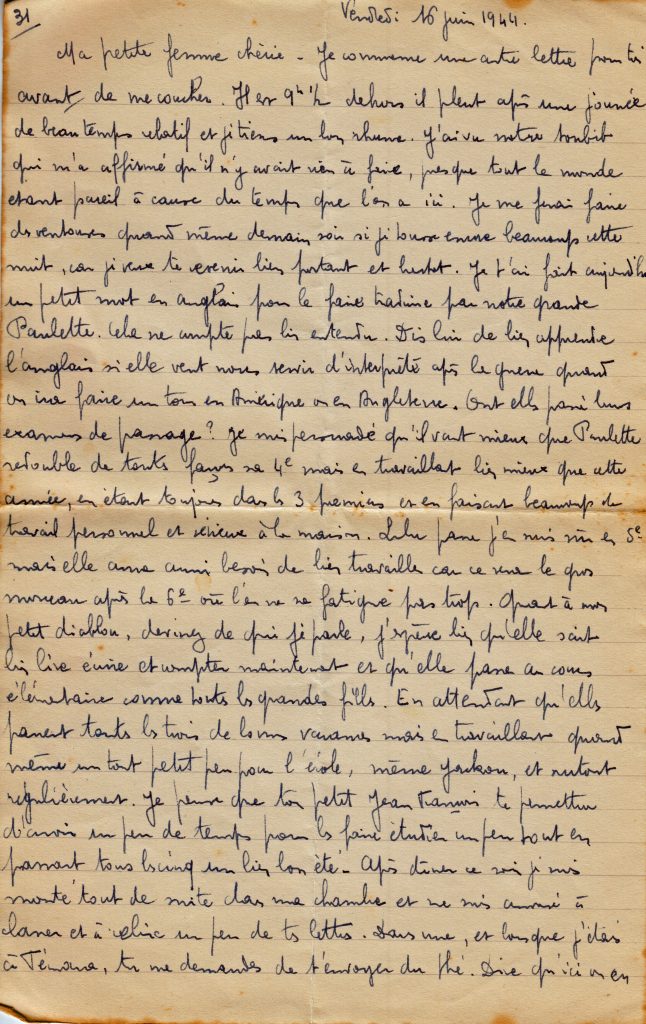 31
Vendredi 16 juin 1944.
Ma petite femme chérie - Je commence une autre lettre pour toi
avant de me coucher. Il est 9h ½ dehors il pleut après une journée
de beau temps relatif et je tiens un bon rhume. J'ai vu notre toubib
qui m'a affirmé qu'il n'y avait rien à faire, presque tout le monde
étant pareil à cause du temps que l'on a ici. Je me ferai faire
des ventouses quand même demain soir si je tousse encore beaucoup cette
nuit, car je veux te revenir bien portant et . Je t'ai fait aujourd'hui
un petit mot en anglais pour le faire traduire par notre grande
Paulette. Cela ne compte pas bien entendu. Dis lui de bien apprendre
l'anglais si elle veut nous servir d'interprète après la guerre quand
on ira faire un tour en Amérique ou en Angleterre. Ont elles passé leurs
examens de passage ? Je suis persuadé qu'il vaut mieux que Paulette
redouble de toutes façons sa 4e mais en travaillant bien mieux que cette
année, en étant toujours dans les 3 premières et en faisant beaucoup de
travail personnel et sérieux à la maison. Lulu passe j'en suis sûr en 5e
mais elle aura aussi besoin de bien travailler car ce sera le gros
morceau après la 6e où l'on ne se fatigue pas trop. Quant à mon
petit diablou, devinez de qui je parle, j'espère bien qu'elle sait
bien lire écrire et compter maintenant et qu'elle passe au cours
élémentaire comme toutes les grandes filles. En attendant qu'elles
passent toutes les trois de bonnes vacances mais en travaillant quand
même un tout petit peu pour l'école, même , et surtout
régulièrement. Je pense que ton petit Jean François te permettra
d'avoir un peu de temps pour les faire étudier un peu tout en
passant tous les cinq un bien bon été - Après dîner ce soir je suis
monté tout de suite dans ma chambre et me suis amusé à
classer et à relire un peu de tes lettres. Dans une, et lorsque j'étais
à Témara, tu me demandes de t'envoyer du thé. Dire qu'ici on en